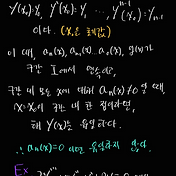 y(x₀)=y₀, y'(x₀)=y₁ ... yⁿ⁻¹(x₀)=yₙ₋₁
이다. (x₀는 초깃값)
이 때, aₙ(x), aₙ₋₁(x)...a₀(x), g(x)가
구간 I에서 연속이고,
구간 내 모든 x에 대해 aₙ(x)≠0 일 때
x=x₀이 구간 내 한 점이라면,
해 y(x)는 유일하다.
∴ aₙ(x)=0 이면 유일하지 않다.
Ex